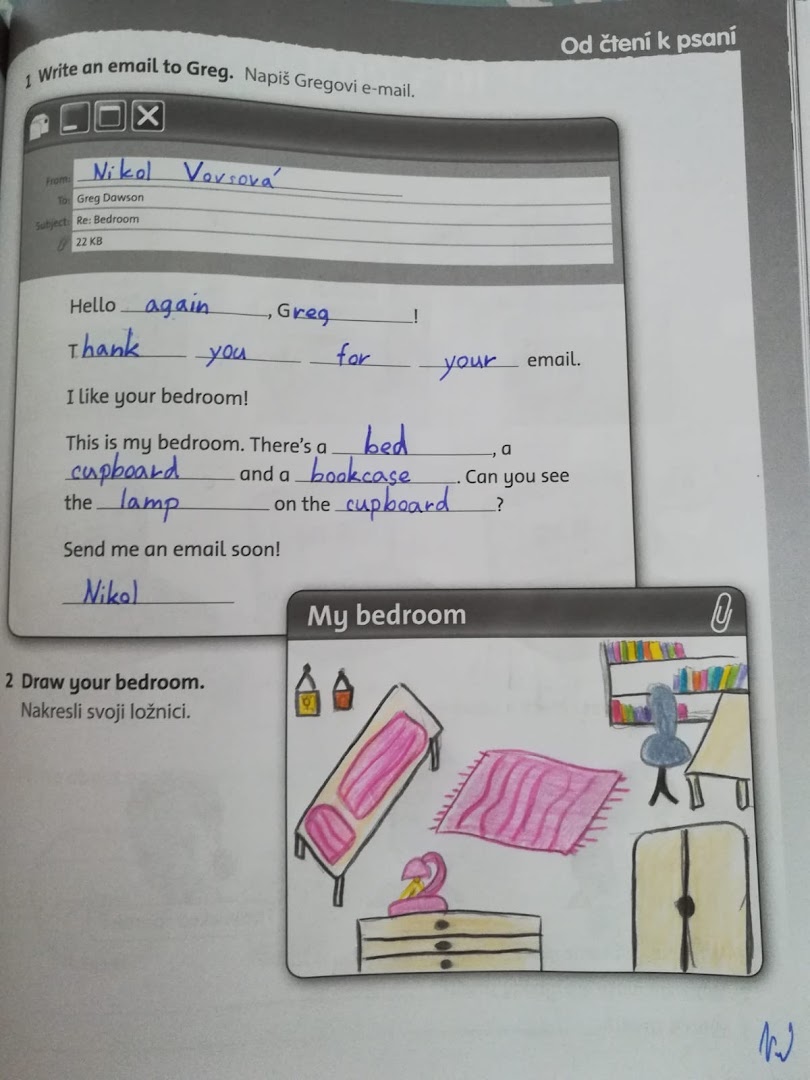 Od čtení k psaní
1 Write an email to Greg. Napiš Gregovi e-mail.
From: Nikol Vovsová
To: Greg Dawson
Subject: Re: Bedroom
22 KB
Hello again, Greg!
Thank you for your email.
I like your bedroom!
This is my bedroom. There's a bed, a
cupboard and a bookcase. Can you see
the lamp on the cupboard?
Send me an email soon!
Nikol
My bedroom
2 Draw your bedroom.
Nakresli svoji ložnici.